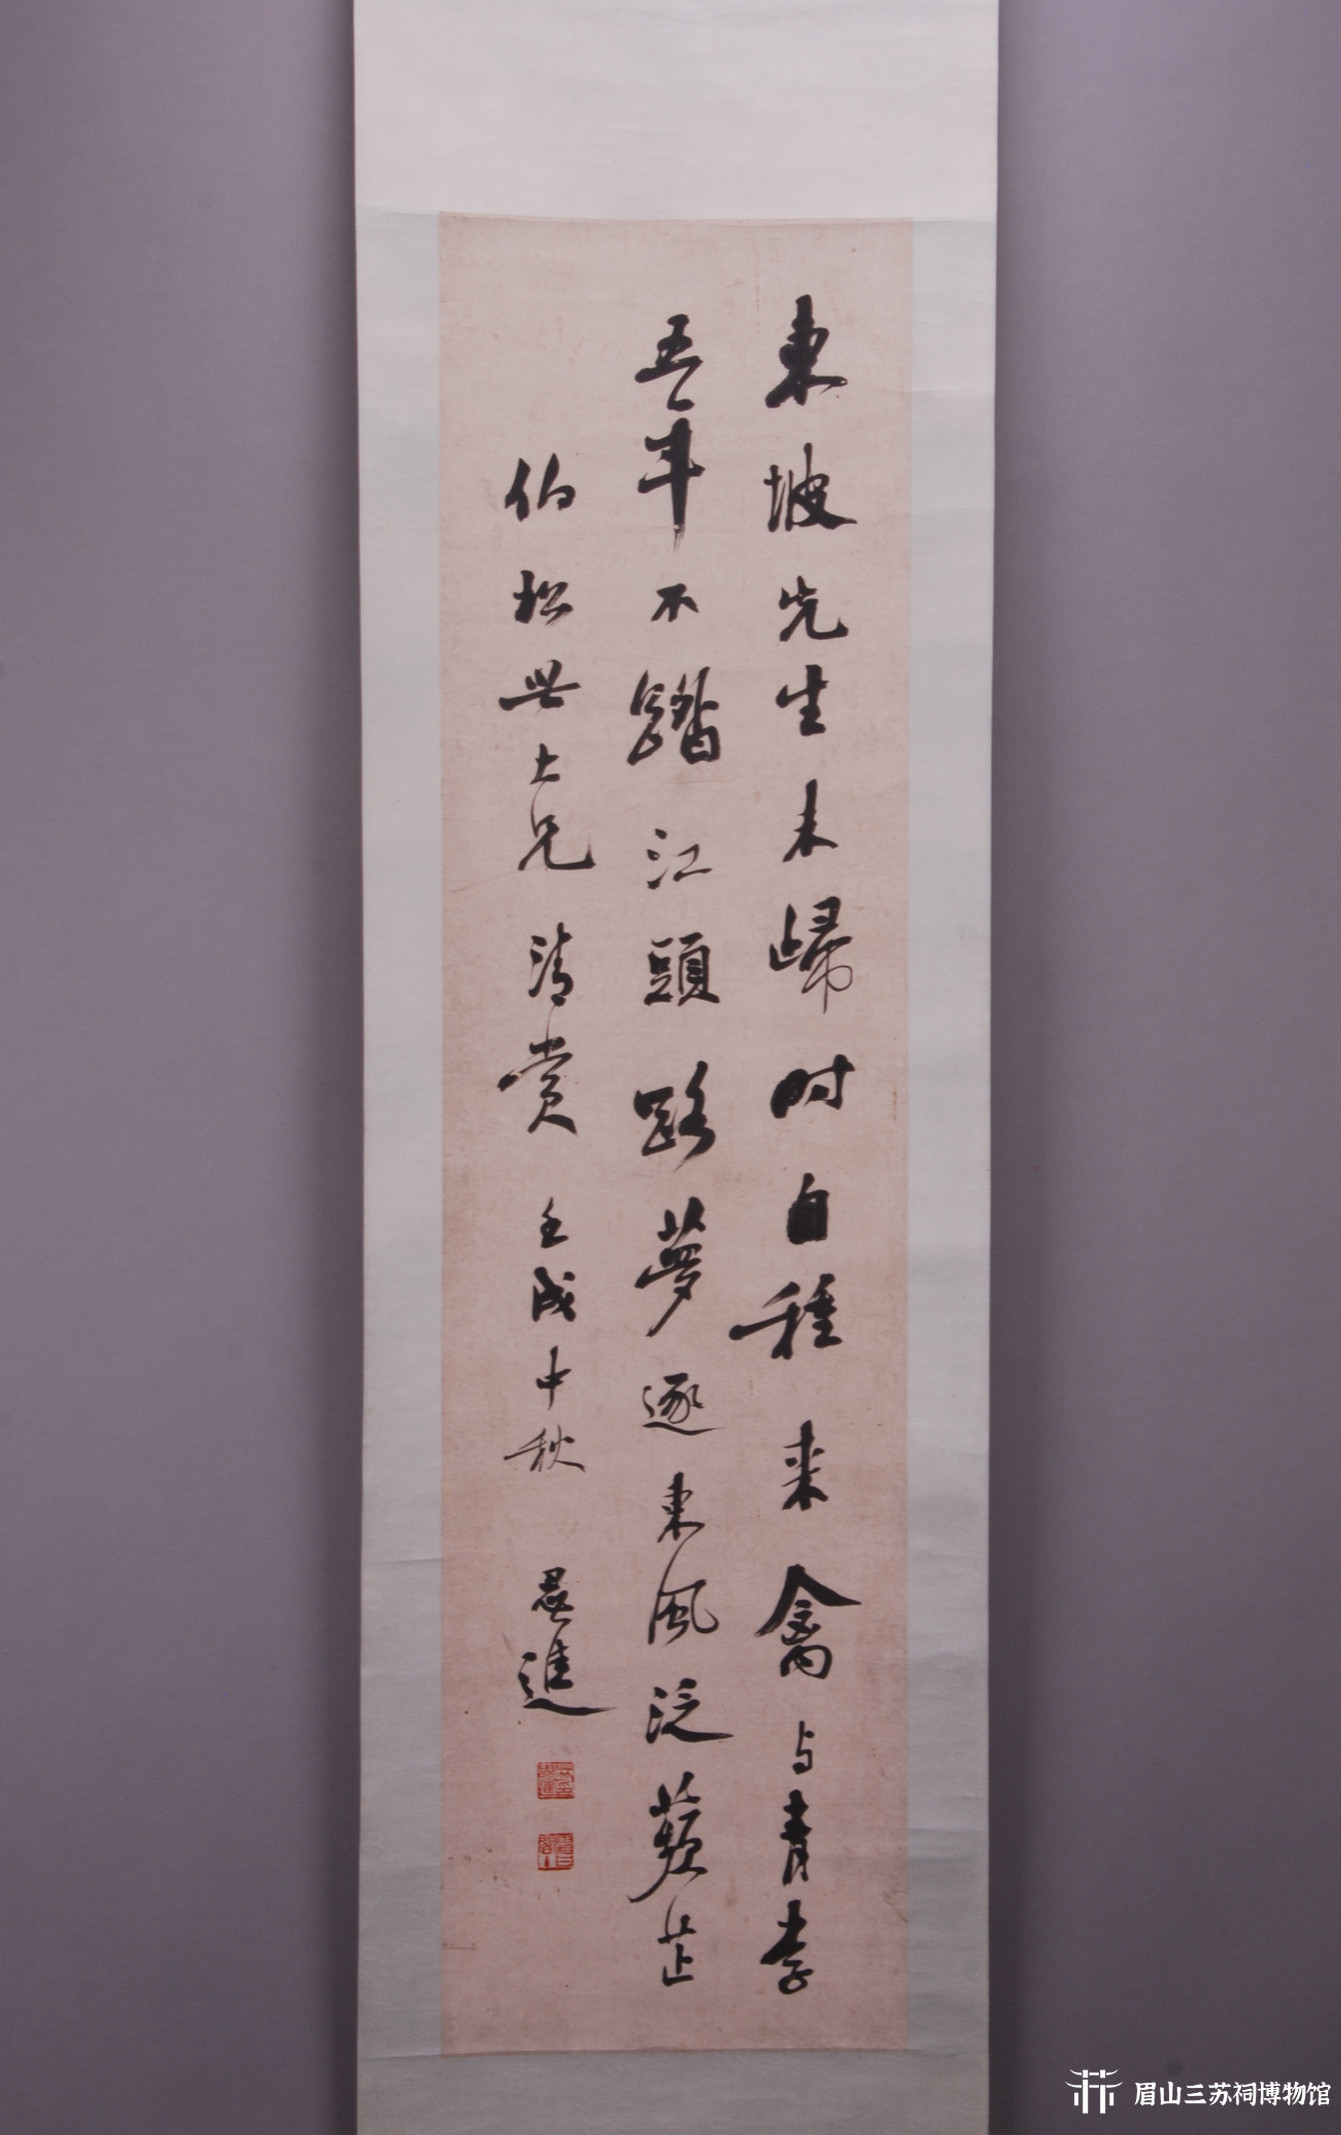 東坡先生未歸时自種来禽与青李
五年不踏江頭路夢逐東風泛蘋芷
伯松世大兄清赏壬戌中秋思進
眉山三苏祠博物馆